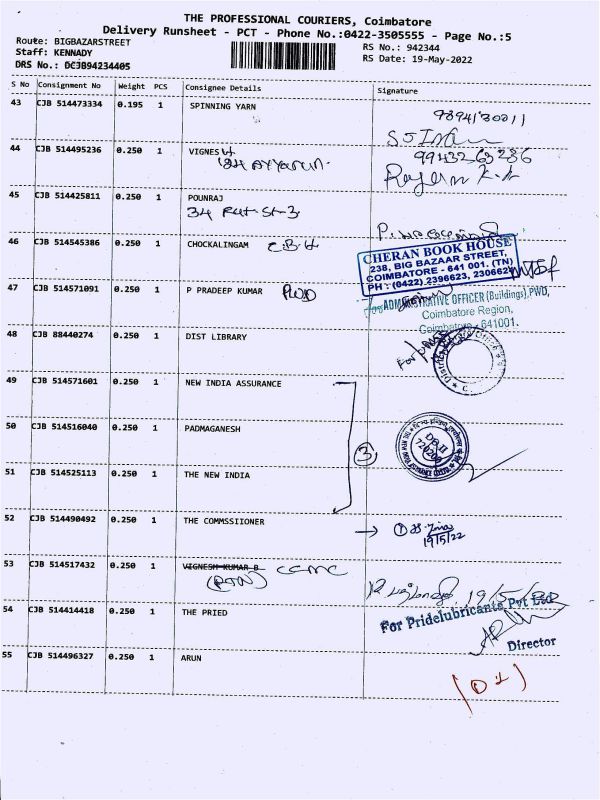 THE PROFESSIONAL COURIERS, Coimbatore
Delivery Runsheet - PCT - Phone No.:0422-3505555 - Page No.:5
Route: BIGBAZARSTREET
RS No.: 942344
Staff: KENNADY
RS Date: 19-May-2022
DRS No.: DCJB94234405
S No Consignment No Weight PCS Consignee Details Signature
43 CJB 514473334 0.195 1 SPINNING YARN
44 CJB 514495236 0.250 1 VIGNESH
9943263236
45 CJB 514425811 0.250 1 POUNRAJ
46 CJB 514545386 0.250 1 CHOCKALINGAM
CHERAN BOOK HOUSE
238, BIG BAZAAR STREET,
COIMBATORE - 641 001. (TN)
PH : (0422) 2396623, 230662
47 CJB 514571091 0.250 1 P PRADEEP KUMAR PWD
ADMINISTRATIVE OFFICER (Buildings), PWD,
Coimbatore Region,
Coimbatore - 641001.
48 CJB 88440274 0.250 1 DIST LIBRARY
49 CJB 514571601 0.250 1 NEW INDIA ASSURANCE
50 CJB 514516040 0.250 1 PADMAGANESH
3
51 CJB 514525113 0.250 1 THE NEW INDIA
52 CJB 514490492 0.250 1 THE COMMSSIIONER
1
19/5/22
53 CJB 514517432 0.250 1 VIGNESH KUMAR B CCMC
54 CJB 514414418 0.250 1 THE PRIED
For Pridelubricants Pvt Ltd
Director
55 CJB 514496327 0.250 1 ARUN